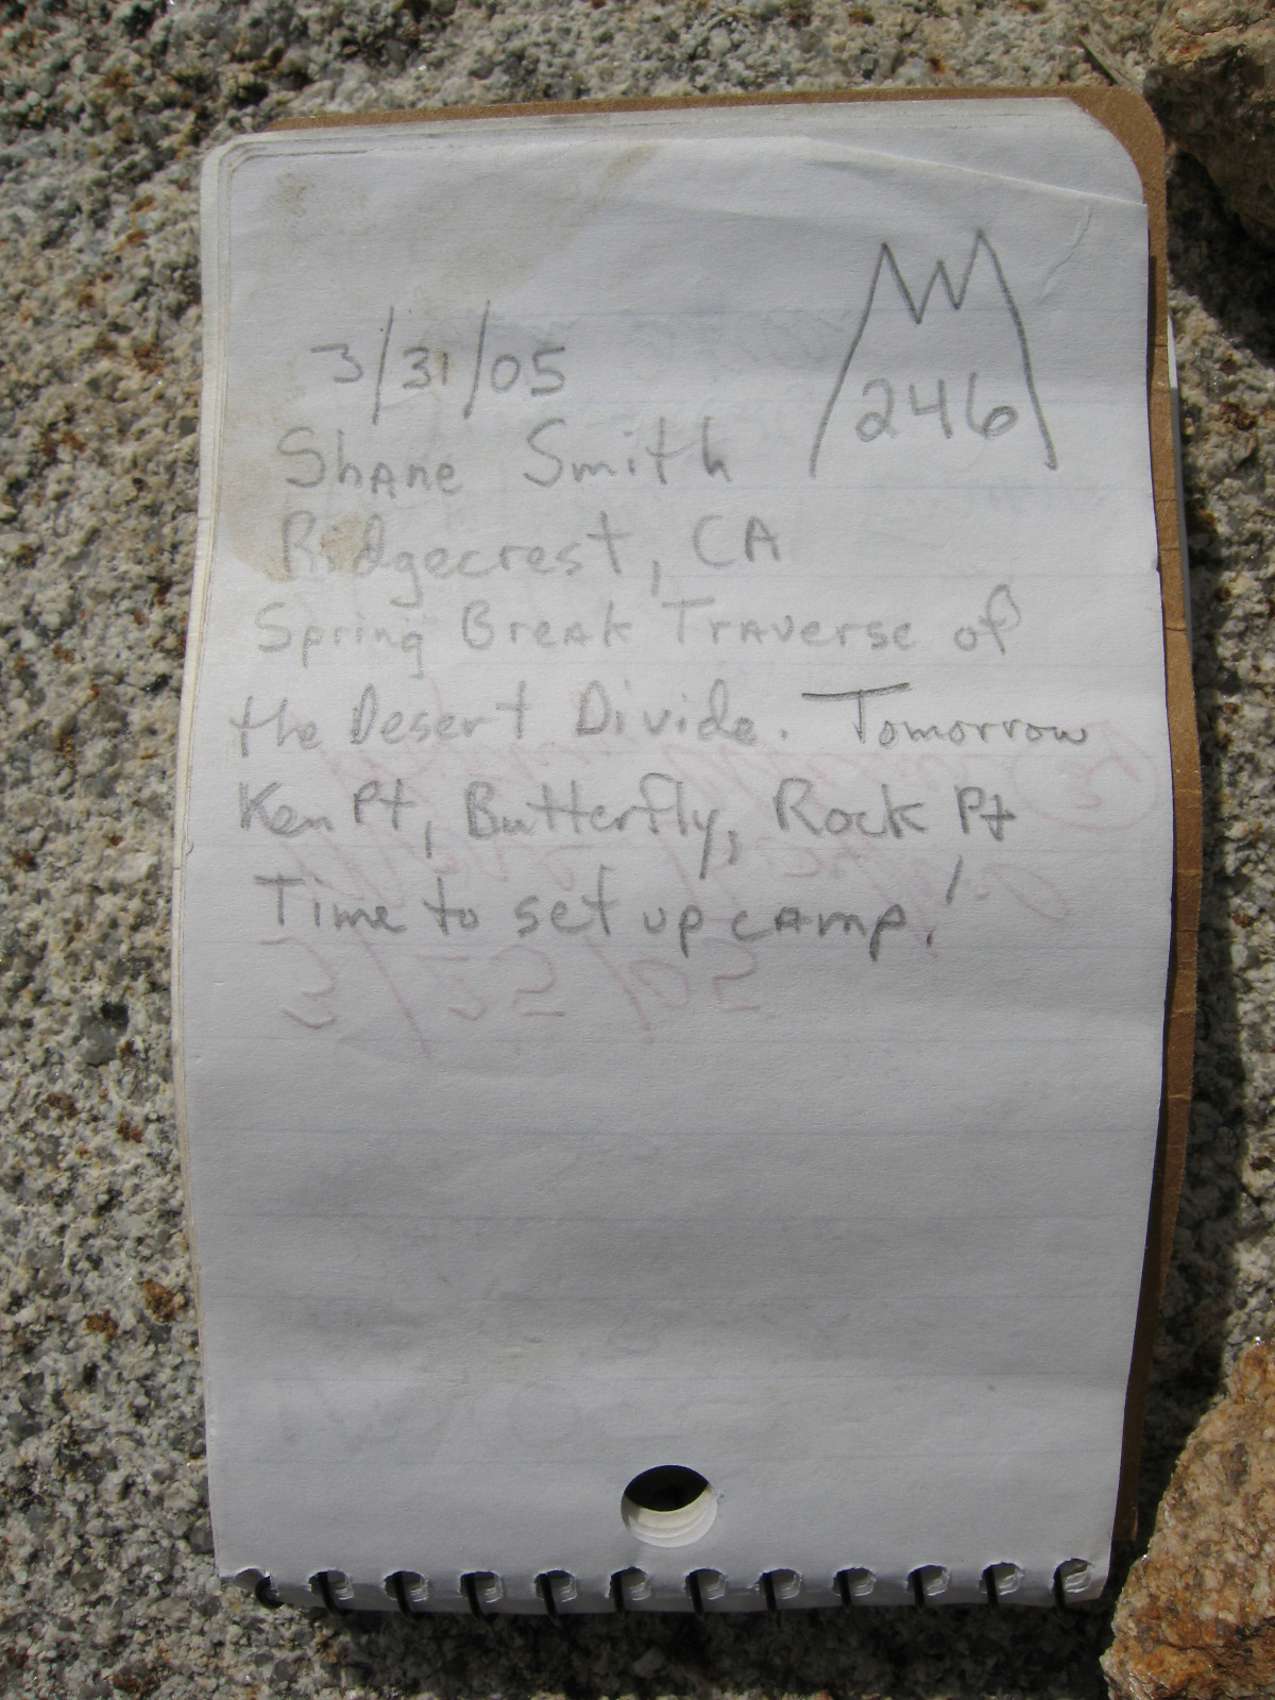 3/31/05
246
Shane Smith
Ridgecrest, CA
Spring Break Traverse of
the Desert Divide. Tomorrow
Ken Pt, Butterfly, Rock Pt
Time to set up camp!